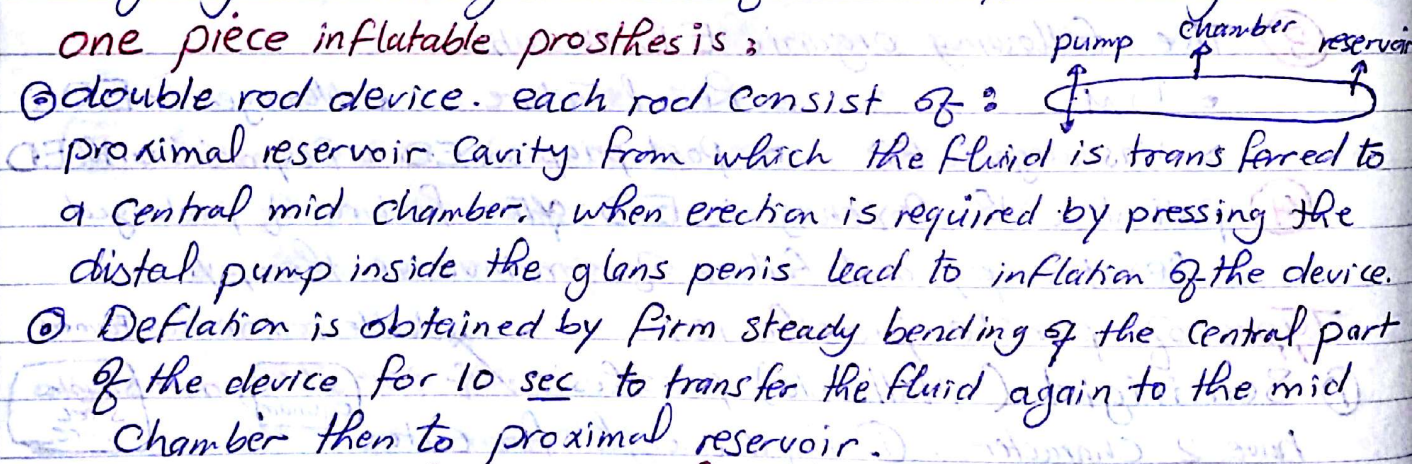 one piece inflatable prosthesis:
pump chamber reservoir
double rod device. each rod consist of :
proximal reservoir cavity from which the fluid is transferred to
a central mid chamber, when erection is required by pressing the
distal pump inside the glans penis lead to inflation of the device.
Deflation is obtained by firm steady bending of the central part
of the device for 10 sec to transfer the fluid again to the mid
chamber then to proximal reservoir.